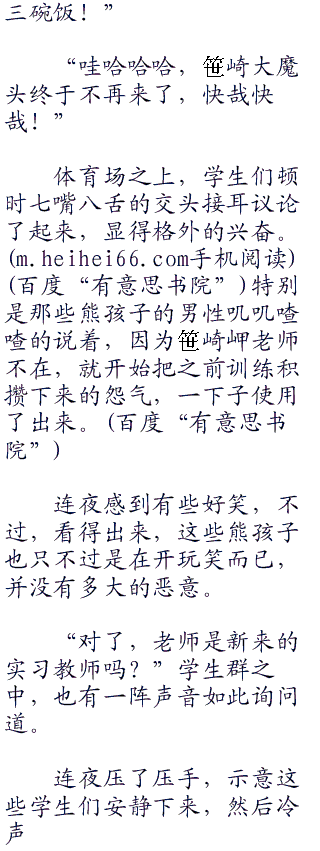 三碗饭！”
“哇哈哈哈，笹崎大魔
头终于不再来了，快哉快
哉！”
体育场之上，学生们顿
时七嘴八舌的交头接耳议论
了起来，显得格外的兴奋。
(m.heihei66.com手机阅读)
(百度“有意思书院”)特别
是那些熊孩子的男性叽叽喳
喳的说着，因为笹崎岬老师
不在，就开始把之前训练积
攒下来的怨气，一下子使用
了出来。(百度“有意思书
院”)
连夜感到有些好笑，不
过，看得出来，这些熊孩子
也只不过是在开玩笑而已，
并没有多大的恶意。
“对了，老师是新来的
实习教师吗？”学生群之
中，也有一阵声音如此询问
道。
连夜压了压手，示意这
些学生们安静下来，然后冷
声